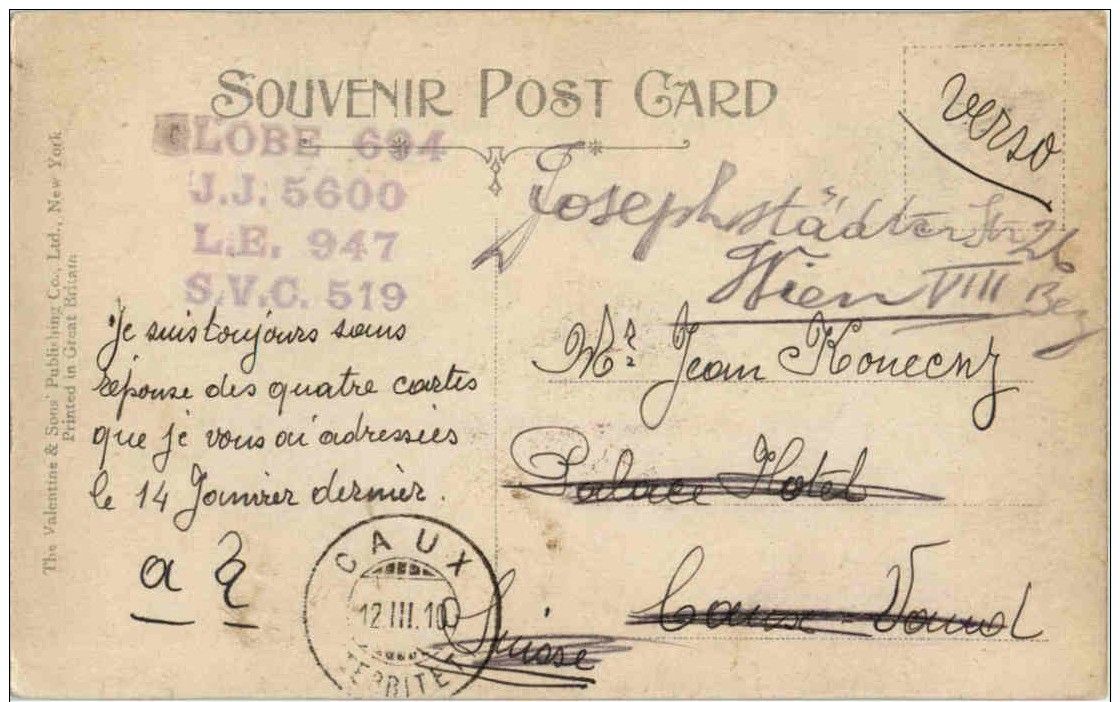 SOUVENIR POST CARD
verso
GLOBE 694
J.J. 5600
L.E. 947
S.V.C. 519
The Valentine & Sons' Publishing Co., Ltd., New York
Printed in Great Britain
Josephstädter Str 26
Wien VIII Bez
Je suis toujours sans
réponse des quatre cartes
que je vous ai adressées
le 14 Janvier dernier.
Mr. Jean Konecny
Palace Hotel
Caux - Vaud
Suisse
CAUX
12.III.10
TERRITET